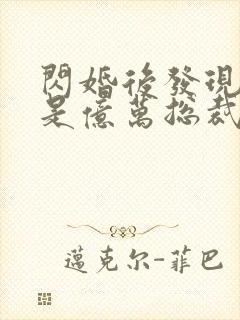 閃婚後發現
是億萬總裁
邁克尔-菲巴